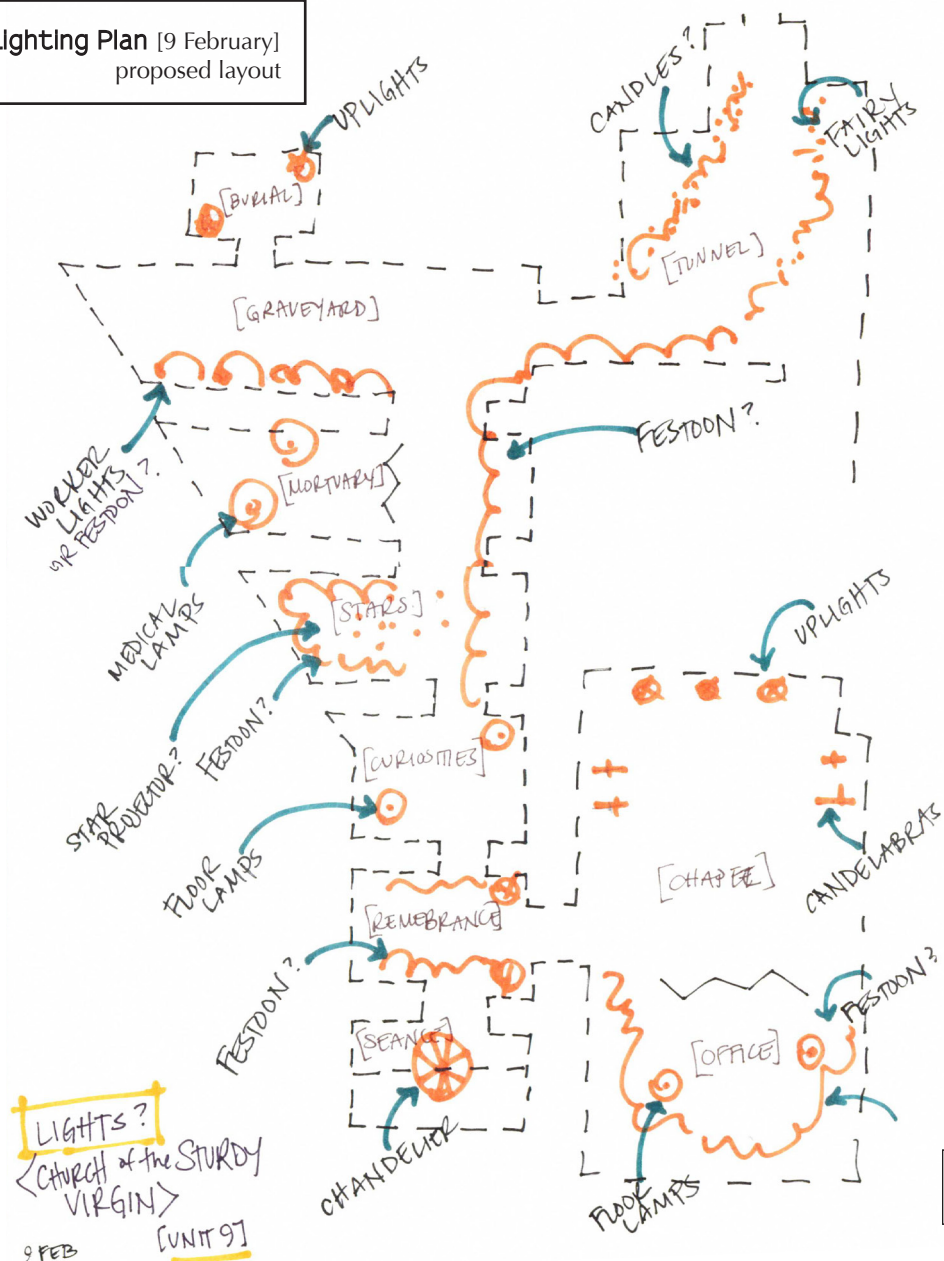 Lighting Plan [9 February]
proposed layout
UPLIGHTS
CANDLES?
FAIRY
LIGHTS
[BURIAL]
[TUNNEL]
[GRAVEYARD]
FESTOON?
WORKER
LIGHTS
OR FESTOON?
[MORTUARY]
MEDICAL
LAMPS
[STARS]
UPLIGHTS
STAR
PROJECTOR?
FESTOON?
[CURIOSITIES]
FLOOR
LAMPS
[CHAPEL]
CANDELABRAS
[REMEBRANCE]
FESTOON?
FESTOON?
[SEANCE]
[OFFICE]
CHANDELIER
FLOOR
LAMPS
LIGHTS?
<CHURCH of the STURDY
VIRGIN>
[UNIT 9]
9 FEB